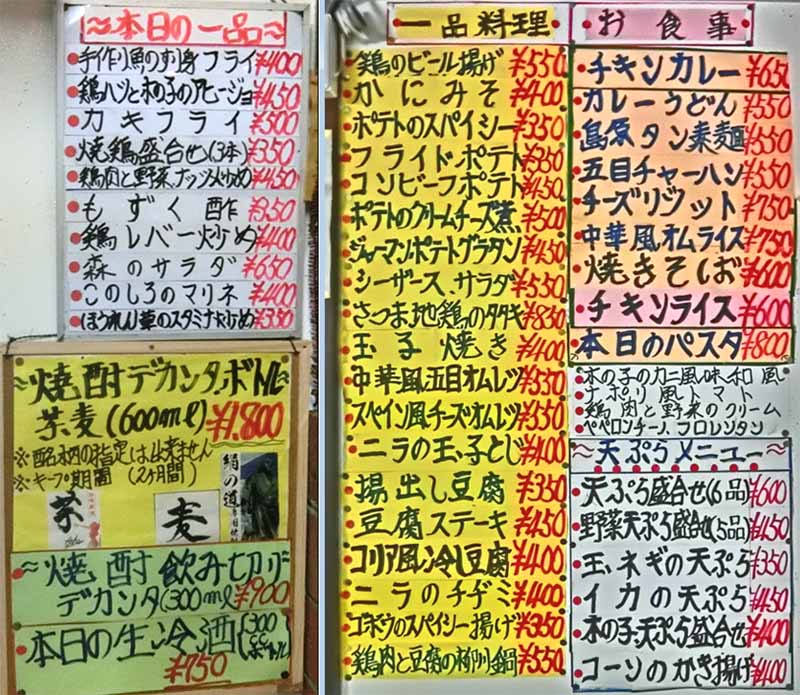 〜本日の一品〜
手作り魚のすり身フライ ¥400
鶏ハツと木の子のアヒージョ ¥450
カキフライ ¥500
焼鶏盛合せ(3本) ¥350
鶏肉と野菜、ナッツ炒め ¥450
もずく酢 ¥350
鶏レバー炒め ¥400
森のサラダ ¥650
このしろのマリネ ¥400
ほうれん草のスタミナ炒め ¥350
〜焼酎デカンタ、ボトル〜
芋、麦(600ml) ¥1,800
※酩柄の指定は出来ません
※キープ期間 (2ヶ月間)
芋
麦
絹の道
〜焼酎飲み切り
デカンタ(300ml ¥900
本日の生冷酒(300
¥750
一品料理
鶏のビール揚げ ¥550
かにみそ ¥400
ポテトのスパイシー ¥350
フライド・ポテト ¥350
コンビーフポテト ¥450
ポテトのクリームチーズ煮 ¥500
ジャーマンポテトグラタン ¥450
シーザース、サラダ ¥550
さつま地鶏のタタキ ¥850
玉子焼き ¥400
中華風五目オムレツ ¥550
スペイン風チーズオムレツ ¥550
ニラの玉子とじ ¥400
揚出し豆腐 ¥350
豆腐ステーキ ¥450
コリア風冷し豆腐 ¥400
ニラのチヂミ ¥400
ゴボウのスパイシー揚げ ¥350
鶏肉と豆腐の柳川鍋 ¥550
お食事
チキンカレー ¥650
カレーうどん ¥550
島原タン素麺 ¥550
五目チャーハン ¥550
チーズリゾット ¥750
中華風オムライス ¥750
焼きそば ¥600
チキンライス ¥600
本日のパスタ ¥800
木の子のカニ風味和風
ナポリ風トマト
鶏肉と野菜のクリーム
ペペロンチーノ、フロレンタン
〜天ぷらメニュー〜
天ぷら盛合せ(6品) ¥600
野菜天ぷら盛合せ(5品) ¥450
玉ネギの天ぷら ¥350
イカの天ぷら ¥450
木の子天ぷら盛合せ ¥400
コーンのかき揚げ ¥400